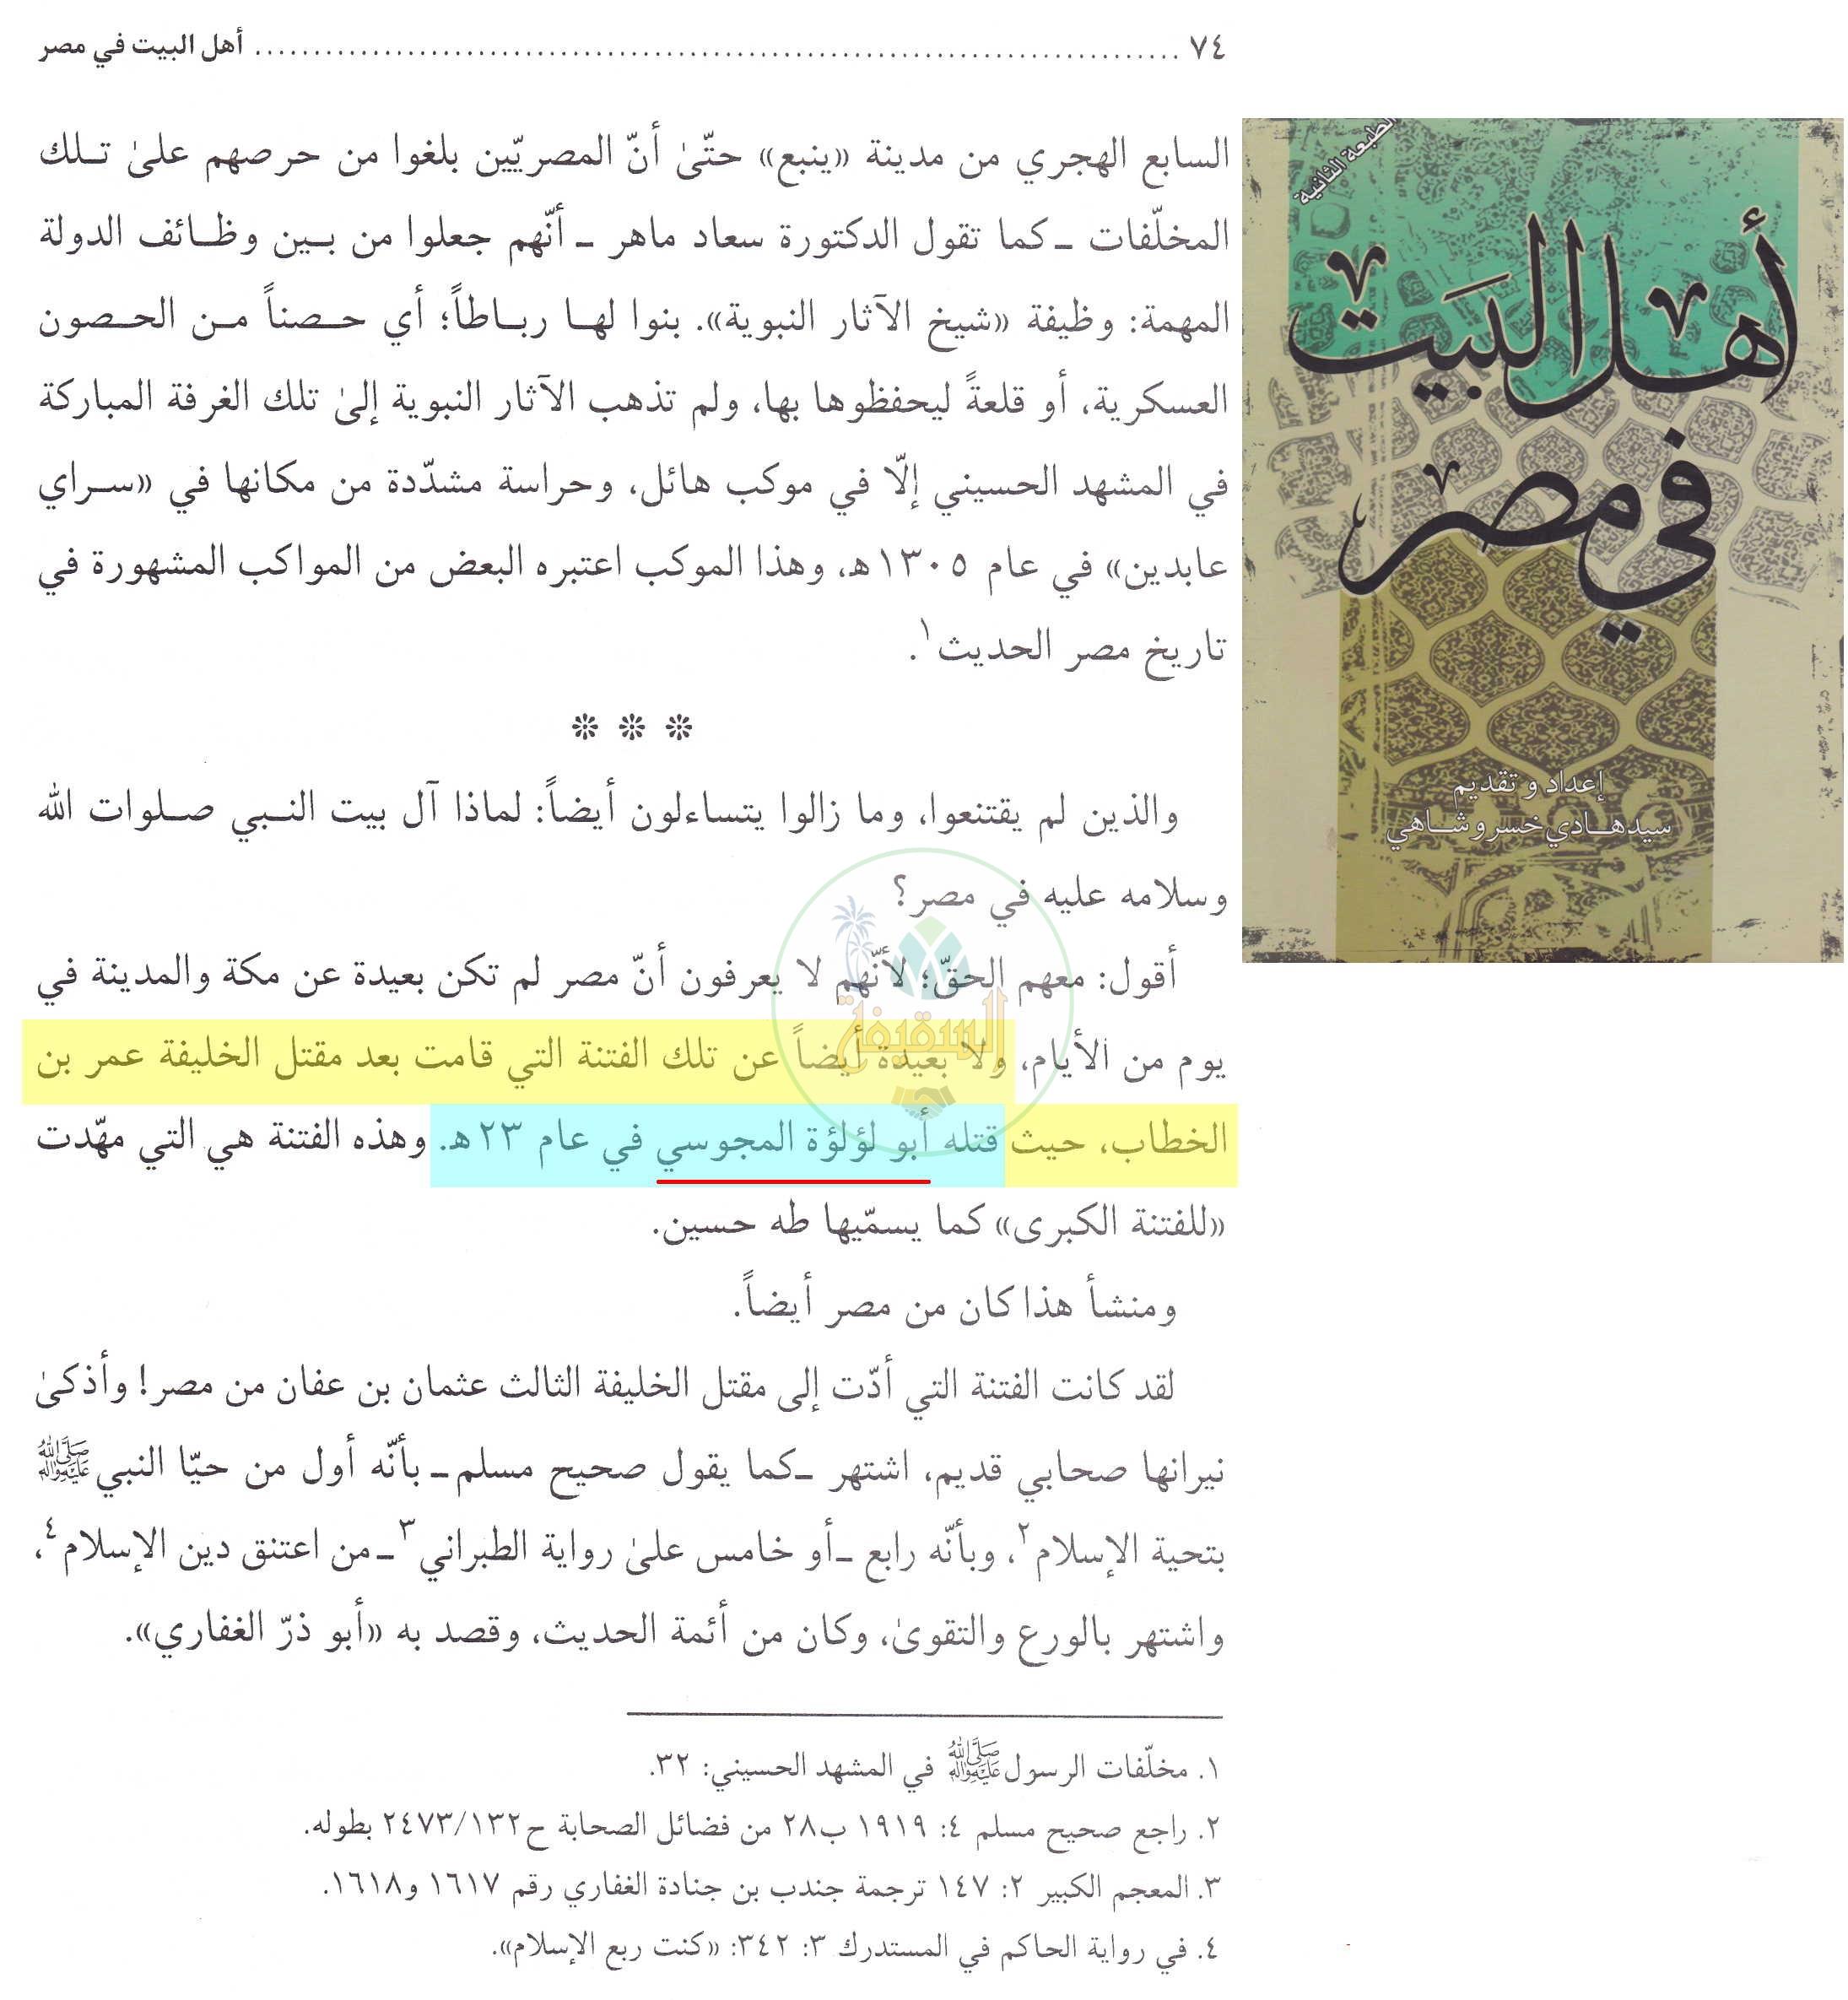 ٧٤ ................................................................................ أهل البيت في مصر
السابع الهجري من مدينة «ينبع» حتّىٰ أنّ المصريّين بلغوا من حرصهم علىٰ تـلك
المخلّفات ـ كما تقول الدكتورة سعاد ماهر ـ أنّهم جعلوا من بـين وظـائف الدولة
المهمة: وظيفة «شيخ الآثار النبوية». بنوا لهـا ربـاطاً؛ أي حـصناً مـن الحـصون
العسكرية، أو قلعةً ليحفظوها بها، ولم تذهب الآثار النبوية إلىٰ تلك الغرفة المباركة
في المشهد الحسيني إلّا في موكب هائل، وحراسة مشدّدة من مكانها في «سـراي
عابدين» في عام ١٣٠٥هـ، وهذا الموكب اعتبره البعض من المواكب المشهورة في
تاريخ مصر الحديث١.
* * *
والذين لم يقتنعوا، وما زالوا يتساءلون أيضاً: لماذا آل بيت النـبي صـلوات الله
وسلامه عليه في مصر؟
أقول: معهم الحقّ؛ لأنّهم لا يعرفون أنّ مصر لم تكن بعيدة عن مكة والمدينة في
يوم من الأيام، ولا بعيدة أيضاً عن تلك الفتنة التي قامت بعد مقتل الخليفة عمر بن
الخطاب، حيث قتله أبو لؤلؤة المجوسي في عام ٢٣هـ. وهذه الفتنة هي التي مهّدت
«للفتنة الكبرى» كما يسمّيها طه حسين.
ومنشأ هذا كان من مصر أيضاً.
لقد كانت الفتنة التي أدّت إلى مقتل الخليفة الثالث عثمان بن عفان من مصر! وأذكىٰ
نيرانها صحابي قديم، اشتهر ـ كما يقول صحيح مسلم ـ بأنّه أول من حيّا النبي ﷺ
بتحية الإسلام٢، وبأنّه رابع ـ أو خامس علىٰ رواية الطبراني٣ ـ من اعتنق دين الإسلام٤،
واشتهر بالورع والتقوىٰ، وكان من أئمة الحديث، وقصد به «أبو ذرّ الغفاري».
١. مخلّفات الرسول ﷺ في المشهد الحسيني: ٣٢.
٢. راجع صحيح مسلم ٤: ١٩١٩ ب٢٨ من فضائل الصحابة ح٢٤٧٣/١٣٢ بطوله.
٣. المعجم الكبير ٢: ١٤٧ ترجمة جندب بن جنادة الغفاري رقم ١٦١٧ و١٦١٨.
٤. في رواية الحاكم في المستدرك ٣: ٣٤٢: «كنت ربع الإسلام».
الطبعة الثانية
أهل البيت
في مصر
إعداد و تقديم
سيد هـادي خسروشاهي
السقيفة